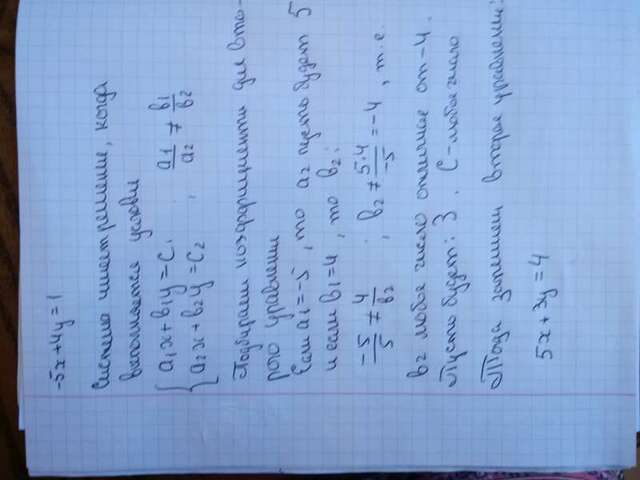 -5x+4y=1
Система имеет решение, когда
выполняется условие
{ a₁x+b₁y=c₁
{ a₂x+b₂y=c₂ , a₁/a₂ ≠ b₁/b₂
Подбираем коэффициенты для вто-
рого уравнения
Если a₁=-5, то a₂ пусть будет 5
и если b₁=4, то b₂:
-5/5 ≠ 4/b₂ ; b₂ ≠ 5·4/-5 = -4, т.е.
b₂ любое число отличное от -4.
Пусть будет: 3. C-любое число
Тогда запишем второе уравнение:
5x+3y=4